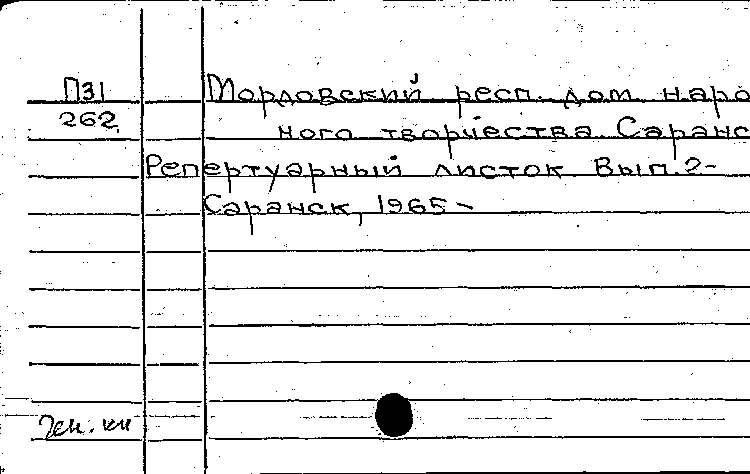 П31 Мордовский респ. дом наро
262 ного творчества. Саранс
Репертуарный листок Вып.2-
Саранск, 1965 -
Ген. кн